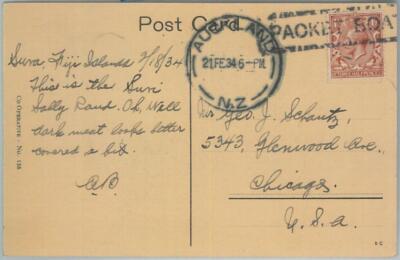 Post Card
AUCKLAND
21FE34 6-PM
N.Z.
PACKET BOAT
THREE HALF PENCE
Suva Fiji Islands 2/18/34
This is the Suvi
Sally Rand. Oh, Well
dark meat looks better
covered a bit.
CO-OPERATIVE - No. 158
Mr Geo. J. Schantz,
5343, Glenwood Ave.,
Chicago.
U.S.A.